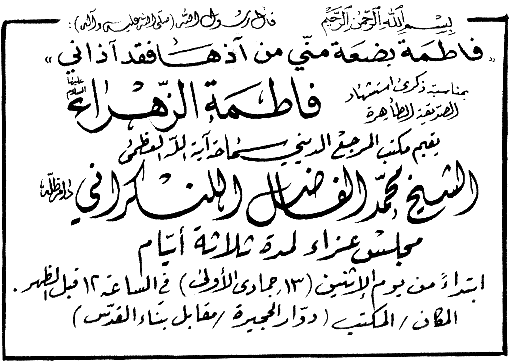 بسم الله الرحمن الرحيم
قال رسول الله (صلى الله عليه وآله):
«فاطمة بضعة مني من آذاها فقد آذاني»
بمناسبة ذكرى استشهاد
الصديقة الطاهرة
فاطمة الزهراء عليها السلام
يقيم مكتب المرجع الديني سماحة آية الله العظمى
الشيخ محمد الفاضل اللنكراني دام ظله
مجلس عزاء لمدة ثلاثة أيام
ابتداءً من يوم الإثنين (١٣ جمادى الأولى) في الساعة ١٢ قبل الظهر.
المكان / المكتب (دوار الحجيرة / مقابل بناء القدس)